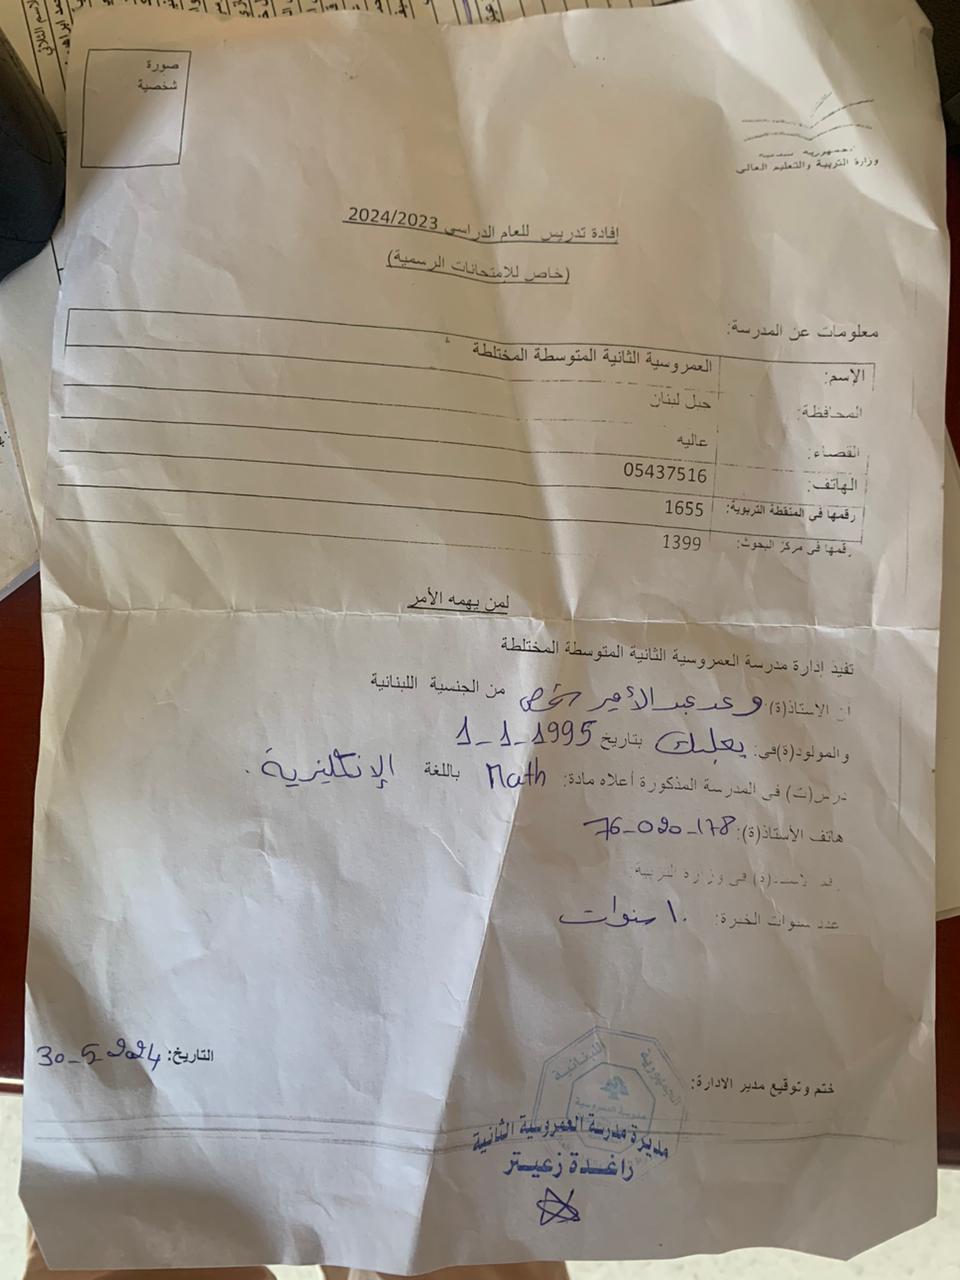 صورة
شخصية
وزارة التربية والتعليم العالي
إفادة تدريس للعام الدراسي 2024/2023
(خاص للإمتحانات الرسمية)
معلومات عن المدرسة:
الإسم: العمروسية الثانية المتوسطة المختلطة
المحافظة: جبل لبنان
القضاء: عاليه
الهاتف: 05437516
رقمها في المنقطة التربوية: 1655
رقمها في مركز البحوث: 1399
لمن يهمه الأمر
تفيد إدارة مدرسة العمروسية الثانية المتوسطة المختلطة
أن الاستاذ(ة) وعد عبد الأمير من الجنسية اللبنانية
والمولود(ة)في: بعلبك بتاريخ 1-1-1995
درس(ت) في المدرسة المذكورة أعلاه مادة: Math باللغة الإنكليزية.
هاتف الأستاذ(ة): 76-020-178
في وزارة التربية:
عدد سنوات الخبرة: ١٠ سنوات
التاريخ: 30-5-2024
ختم وتوقيع مدير الادارة:
الجمهورية اللبنانية
مديرة مدرسة العمروسية الثانية
راغدة زعيتر